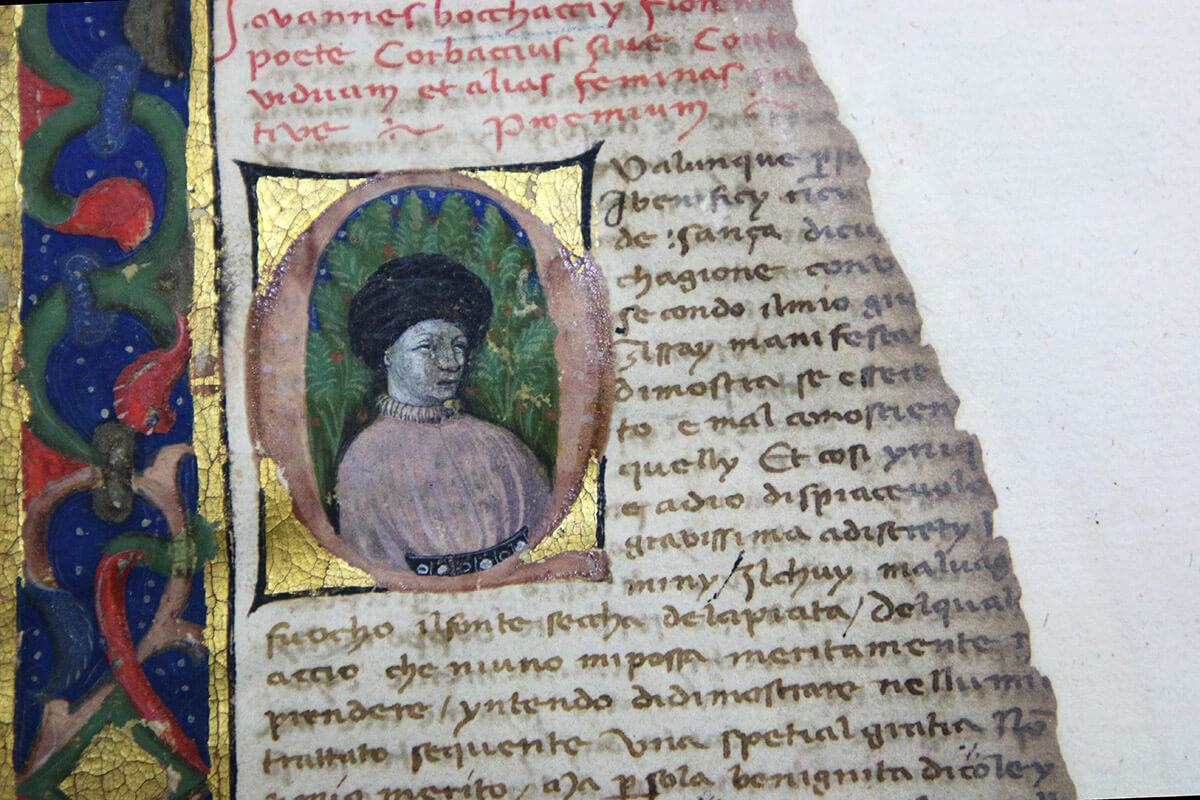 Iovannes bocchaccij floren
poete Corbaccius sive Cont
viduam et alias feminas
tive Proemium
Qualunque perso
ibeneficij ricu
de sança dicu
chagione conv
secondo ilmio giu
assay manifesta
dimostra se essere
to e mal conoscien
quelly Et cosi yniq
e adio dispiacevole
gravissima a discrety
miny / Ilchuy malvag
fuocho ilfonte seccha delapiata / delqual
accio che niuno mipossa meritamente
prendere / yntendo didimostrare nellumi
trattato sequente Una spetial gratia
mio merito, Ma per sola benignita di coley